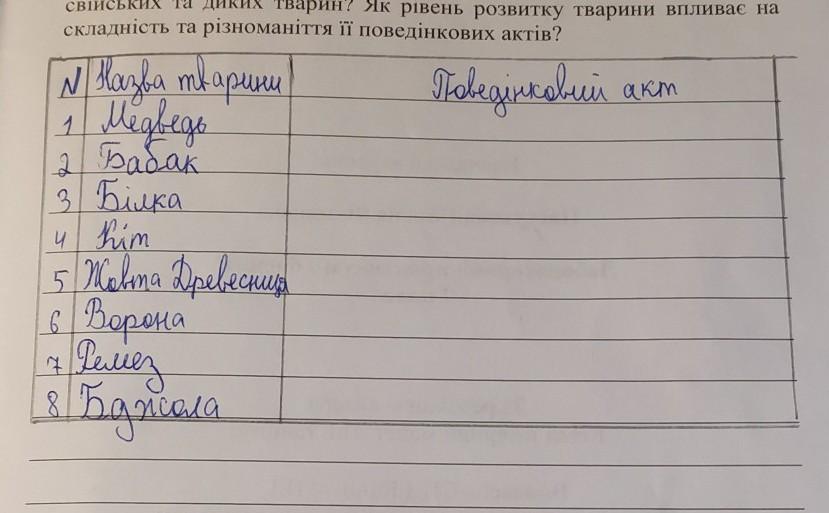 свійських та диких тварин? Як рівень розвитку тварини впливає на
складність та різноманіття її поведінкових актів?
N Назва тварини Поведінковий акт
1 Медведь
2 Бабак
3 Білка
4 Кіт
5 Жовта Древесниця
6 Ворона
7 Ремез
8 Бджола